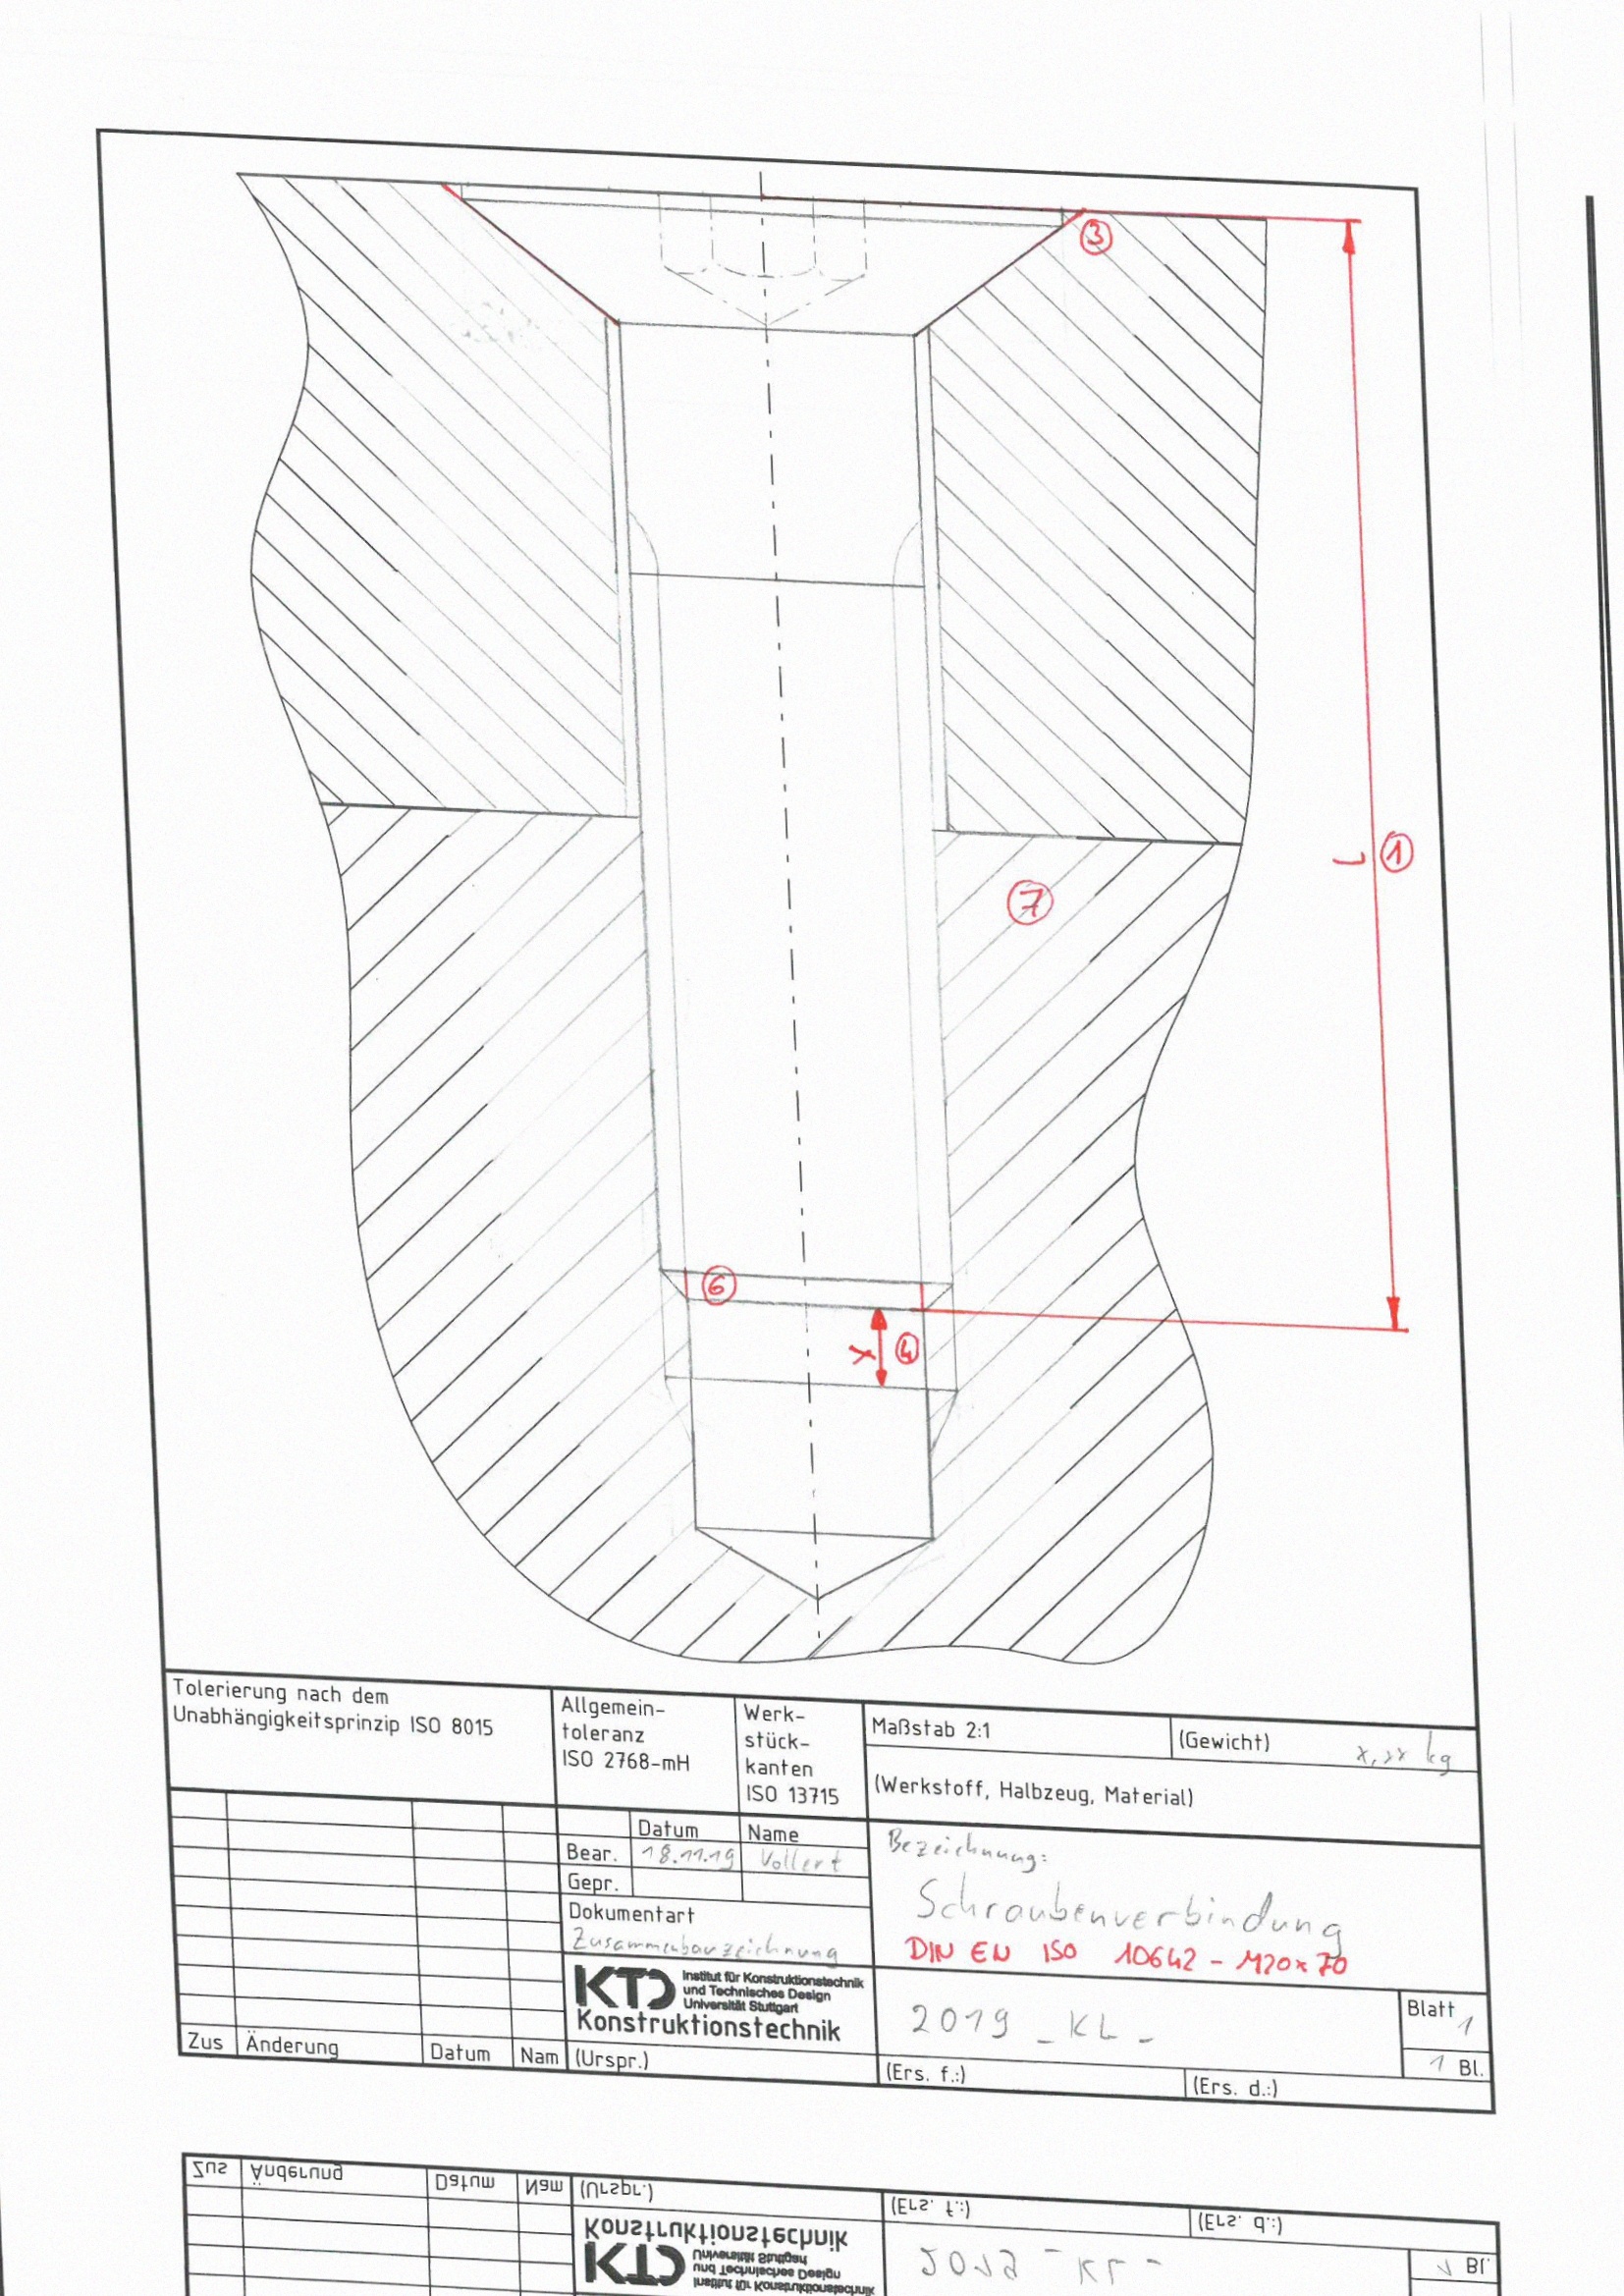 3
L 1
7
6
x 4
Tolerierung nach dem
Unabhängigkeitsprinzip ISO 8015
Allgemein-
toleranz
ISO 2768-mH
Werk-
stück-
kanten
ISO 13715
Maßstab 2:1
(Gewicht) x,xx kg
(Werkstoff, Halbzeug, Material)
Datum Name
Bear. 18.11.19 Vollert
Gepr.
Dokumentart
Zusammenbauzeichnung
Bezeichnung:
Schraubenverbindung
DIN EN ISO 10642 - M20x70
KTD Institut für Konstruktionstechnik
und Technisches Design
Universität Stuttgart
Konstruktionstechnik
2019 - KL -
Blatt 1
1 Bl.
Zus Änderung Datum Nam (Urspr.)
(Ers. f.:) (Ers. d.:)
Zus Änderung Datum Nam (Urspr.)
(Ers. f.:) (Ers. d.:)
Konstruktionstechnik
KTD Universität Stuttgart
und Technisches Design
Institut für Konstruktionstechnik
2019 - KL -
1 Bl.